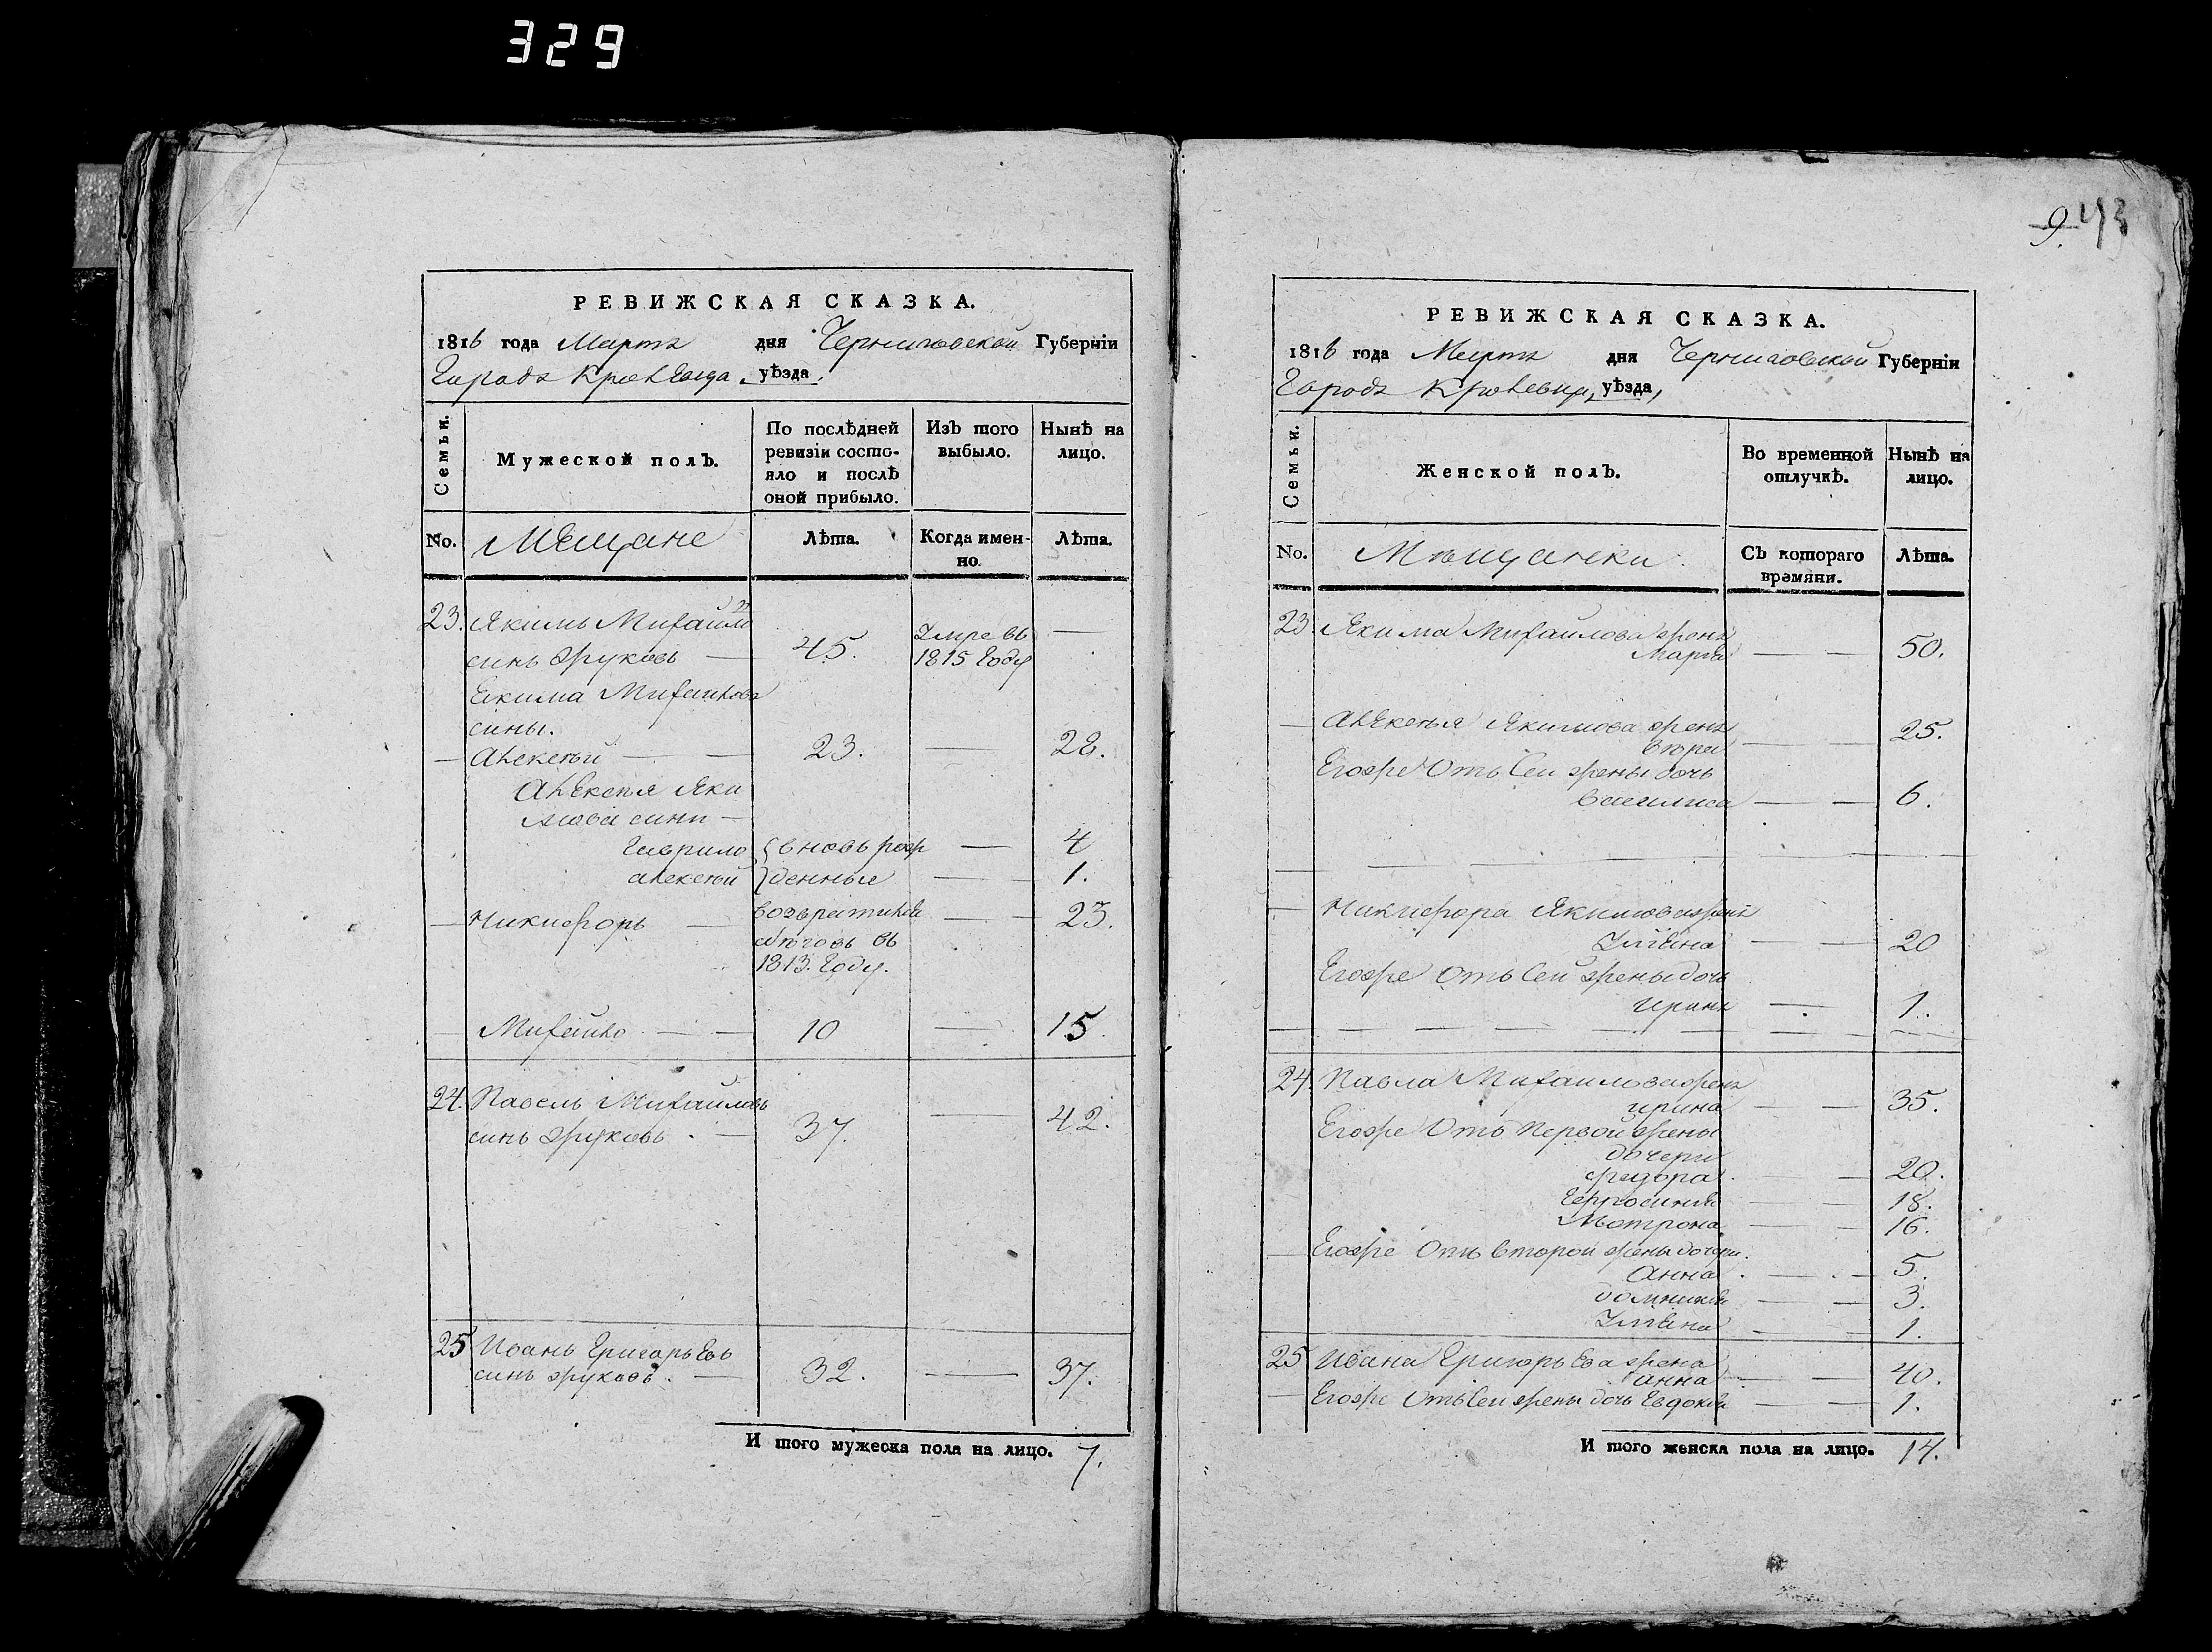 329
РЕВИЖСКАЯ СКАЗКА.
1816 года Мартъ дня Черниговской Губерніи
Города Кролевца уѣзда.
Семьи.
Мужеской полъ.
По послѣдней ревизіи состояло и послѣ оной прибыло.
Изъ того выбыло.
Нынѣ на лицо.
No.
Мещане
Лѣта.
Когда именно.
Лѣта.
23. Якимъ Михайловъ
синъ Жуковъ — 45. Умре въ 1815 году —
Екима Михайлова
сины.
— Алексей — 23. — 28.
Алексея Яки
мова сини —
Гаврило вновь рож — 4
алексей денные — 1.
— Никифоръ — возвратился — 23.
въ
1813. году.
— Михайло — — 10 — 15.
24. Павелъ Михайловъ
синъ Жуковъ. — 37. — 42.
25 Иванъ Григорьевъ
синъ Жуковъ. — 32. — 37.
И того мужеска пола на лицо. 7.
9. 43
РЕВИЖСКАЯ СКАЗКА.
1816 года Мартъ дня Черниговской Губерніи
Города Кролевца, уѣзда,
Семьи.
Женской полъ.
Во временной отлучкѣ.
Нынѣ на лицо.
No.
Мѣщанки
Съ котораго времяни.
Лѣта.
23. Якима Михайлова жена
Марфа — — 50.
— Алексея Якимова жена
— — 25.
Егоже Отъ Сей жены дочь
Василиса — — 6.
— Никифора Якимова жена
Улїяна — — 20
Егоже отъ Сей жены дочь
ирина — 1.
24. Павла Михайлова жена
ирина — — 35.
Егоже Отъ Первой жены
дочери
федора. — 20.
— 18.
Мотрона — 16.
— Егоже Отъ второй жены дочери.
Анна. — 5.
домникия — — 3.
Улїяна — 1.
25 Ивана Григорьева жена
анна — — 40.
— Егоже Отъ Сей жены дочь Евдокия — — 1.
И того женска пола на лицо. 14.